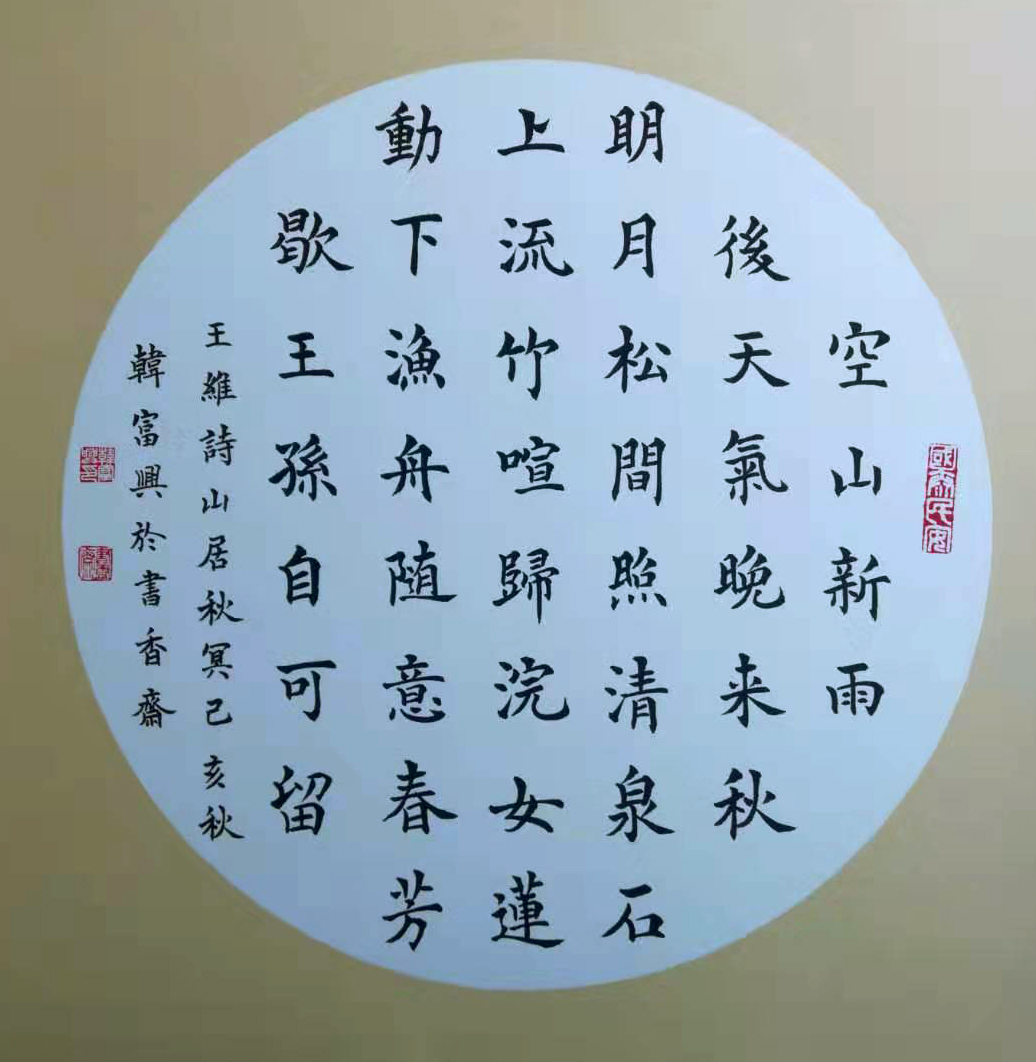 國泰民安
空山新雨
後天氣晚来秋
明月松間照清泉石
上流竹喧歸浣女蓮
動下漁舟随意春芳
歇王孫自可留
王維詩山居秋冥己亥秋
韓富興於書香齋